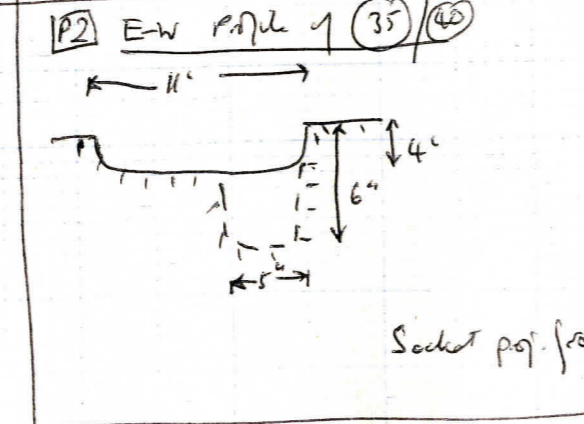 P2 E-W Profile of 35/40
11"
4"
6"
5"
Socket proj. fro